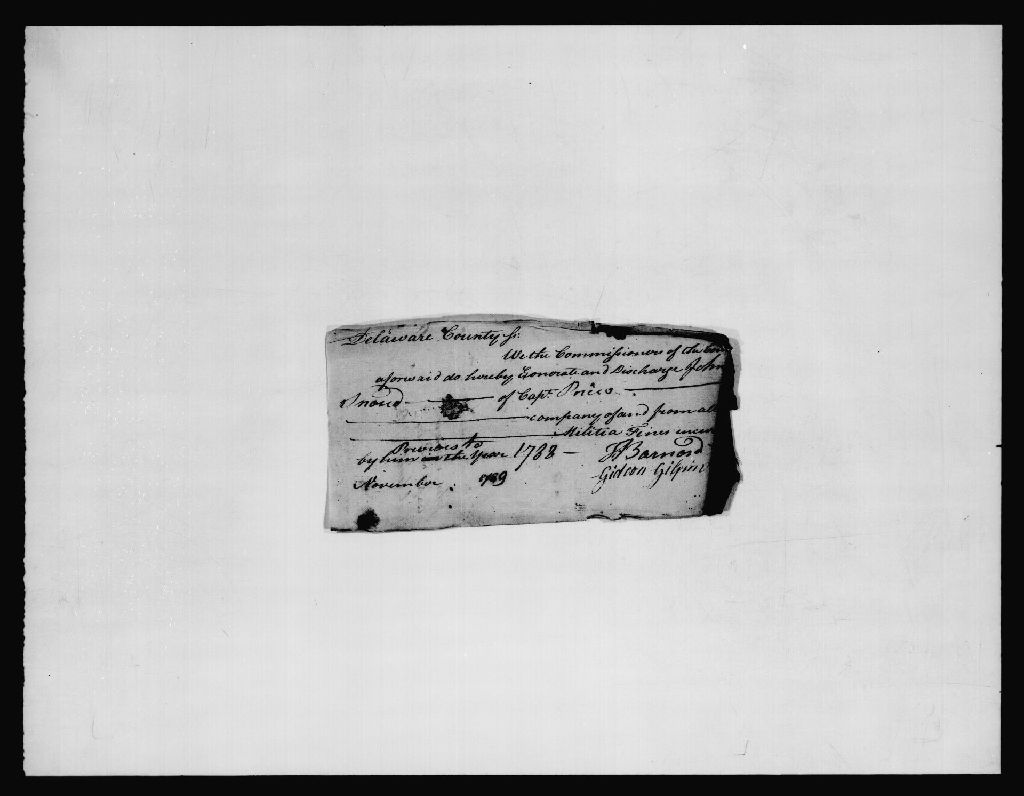 Delaware County Ss.
We the Commissioners of the
aforesaid do hereby Exonerate and Discharge John
of Capt. Prices
company of and from all
Militia Fines
Previous to
by him in the Year 1788 —
Barnard
November 789
Gideon Gilpin